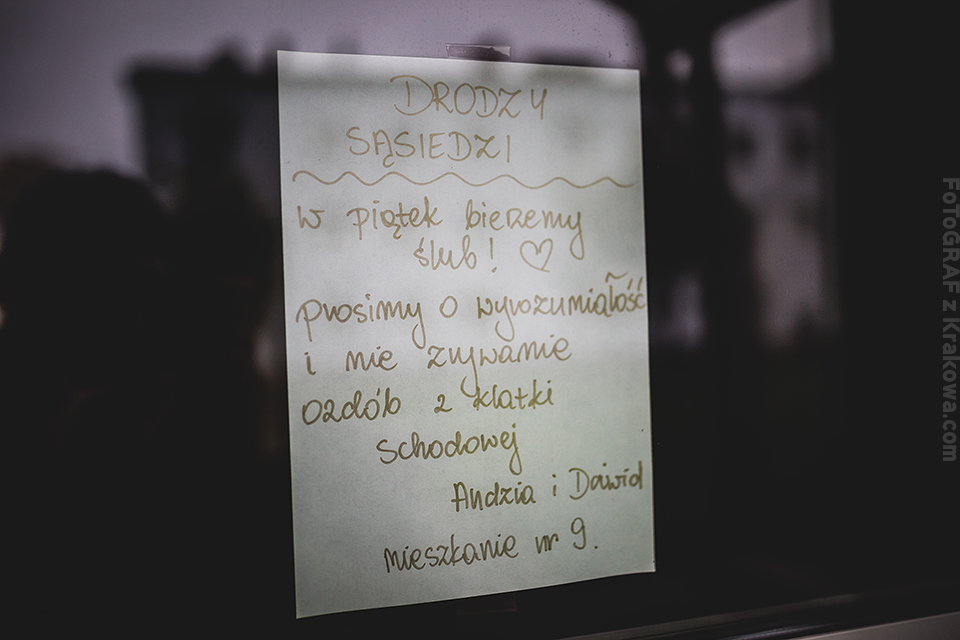 DRODZY
SĄSIEDZI
W piątek bierzemy
ślub! ♡
prosimy o wyrozumiałość
i nie zrywanie
ozdób z klatki
schodowej
Andzia i Dawid
mieszkanie nr 9.
FoToGRAF z Krakowa.com